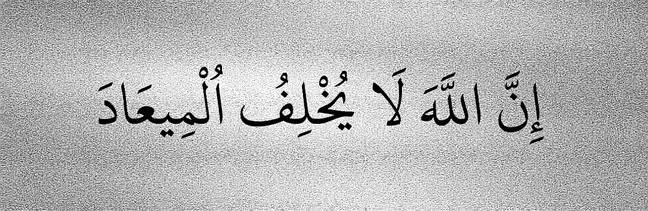 إِنَّ اللَّهَ لَا يُخْلِفُ اُلْمِيعَادَ